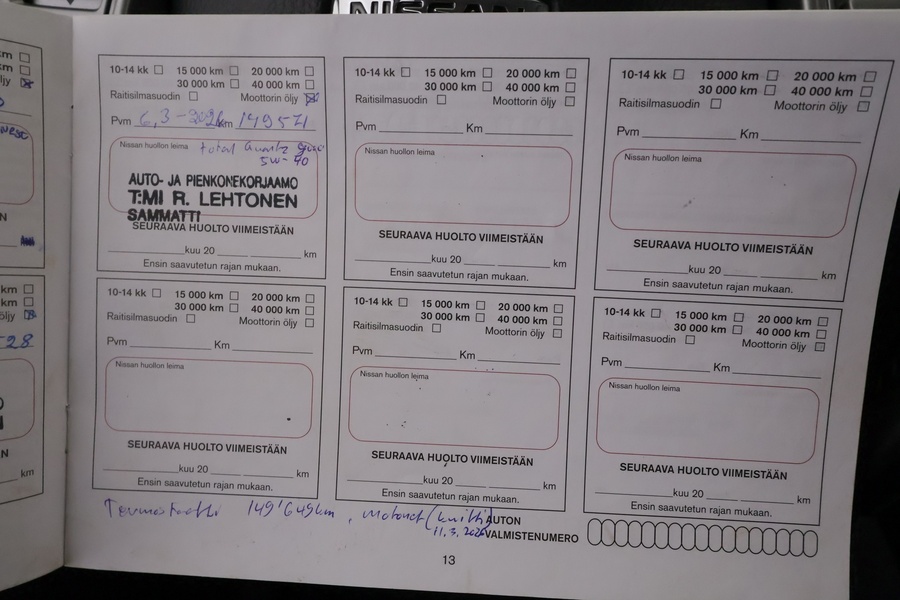 NISSAN
km
km
öljy
N
km
km
öljy
28
N
km
10-14 kk 15 000 km 20 000 km
30 000 km 40 000 km
Raitisilmasuodin Moottorin öljy
Pvm 6,3 - Km 149571
Nissan huollon leima Total Quartz
5W-40
AUTO- JA PIENKONEKORJAAMO
T:MI R. LEHTONEN
SAMMATTI
SEURAAVA HUOLTO VIIMEISTÄÄN
kuu 20 km
Ensin saavutetun rajan mukaan.
10-14 kk 15 000 km 20 000 km
30 000 km 40 000 km
Raitisilmasuodin Moottorin öljy
Pvm Km
Nissan huollon leima
SEURAAVA HUOLTO VIIMEISTÄÄN
kuu 20 km
Ensin saavutetun rajan mukaan.
10-14 kk 15 000 km 20 000 km
30 000 km 40 000 km
Raitisilmasuodin Moottorin öljy
Pvm Km
Nissan huollon leima
SEURAAVA HUOLTO VIIMEISTÄÄN
kuu 20 km
Ensin saavutetun rajan mukaan.
10-14 kk 15 000 km 20 000 km
30 000 km 40 000 km
Raitisilmasuodin Moottorin öljy
Pvm Km
Nissan huollon leima
SEURAAVA HUOLTO VIIMEISTÄÄN
kuu 20 km
Ensin saavutetun rajan mukaan.
10-14 kk 15 000 km 20 000 km
30 000 km 40 000 km
Raitisilmasuodin Moottorin öljy
Pvm Km
Nissan huollon leima
SEURAAVA HUOLTO VIIMEISTÄÄN
kuu 20 km
Ensin saavutetun rajan mukaan.
10-14 kk 15 000 km 20 000 km
30 000 km 40 000 km
Raitisilmasuodin Moottorin öljy
Pvm Km
Nissan huollon leima
SEURAAVA HUOLTO VIIMEISTÄÄN
kuu 20 km
Ensin saavutetun rajan mukaan.
Termostaatti 149'649km, Motonet (kuitti)
11.3.
AUTON
VALMISTENUMERO
13